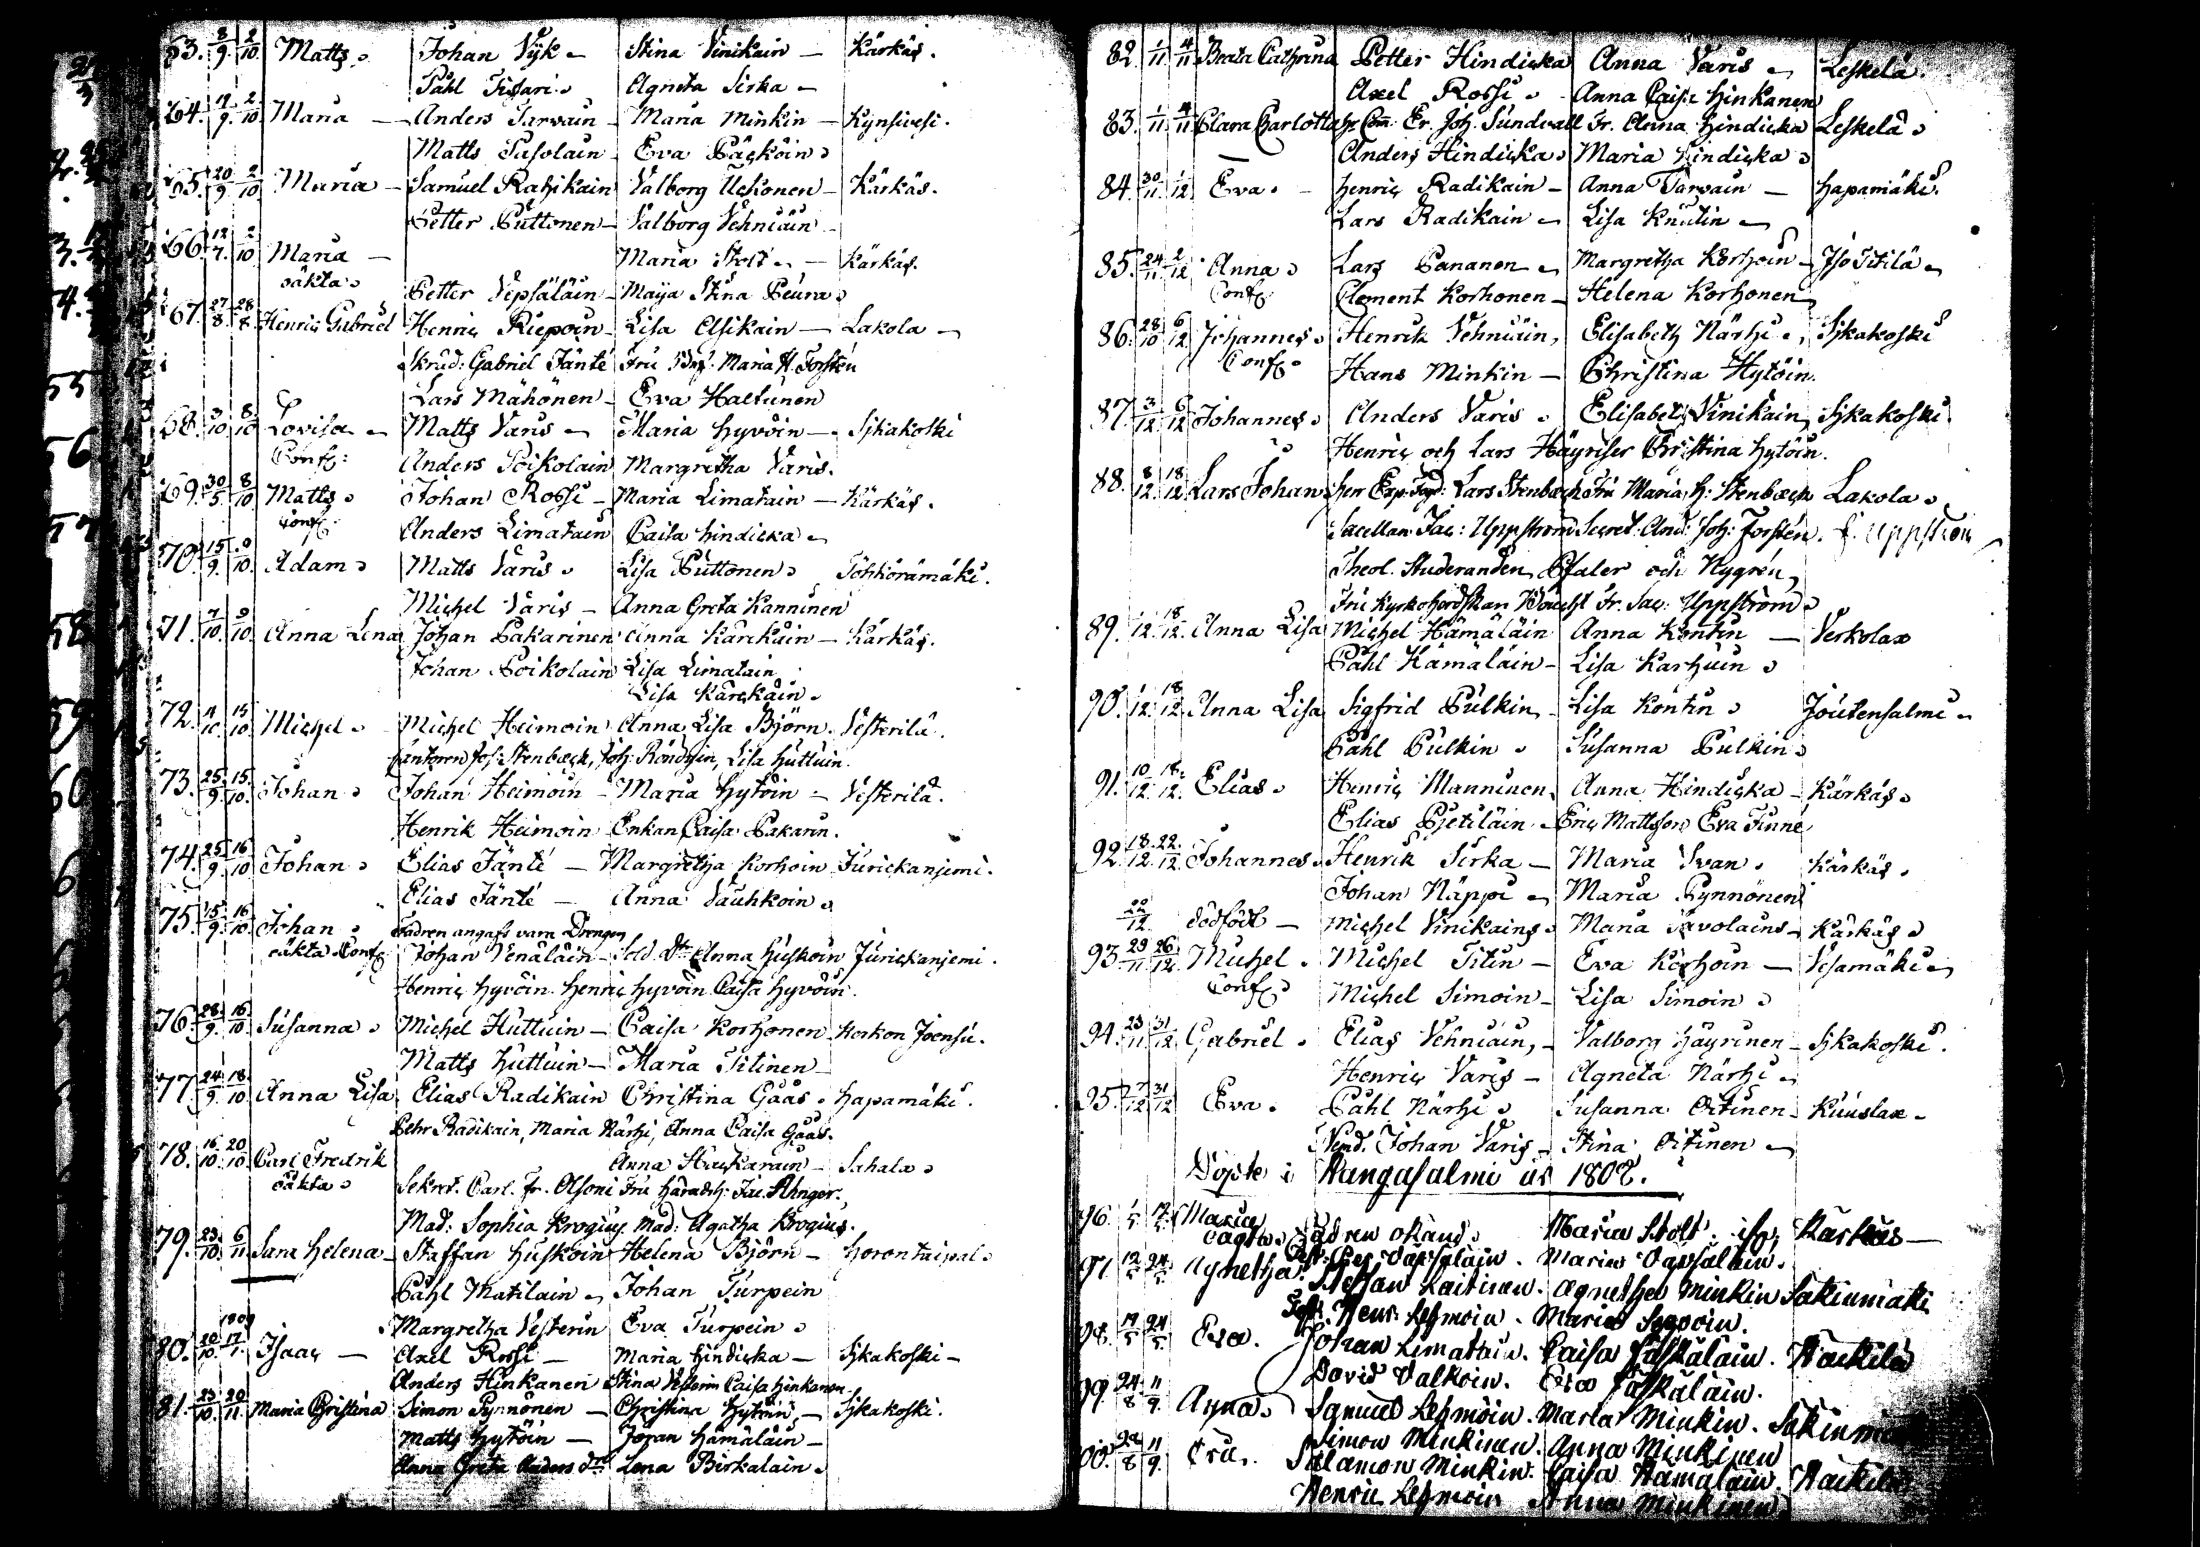 63. 8/9. 2/10. Matts Johan Vyk Stina Vinikain Kärkäs.
Påhl Tissari Agneta Sirka
64. 19/9. 2/10. Maria Anders Tarvain Maria Minkin Kynsivesi.
Matts Pasolain Eva Päcköin
65. 20/9. 2/10. Maria Samuel Ratikain Valborg Uckonen Kärkäs.
Petter Puttonen Valborg Vehniäin
66. 12/7. 2/10. Maria Maria Stolt Kärkäs.
oäkta Petter Vepsäläin Maija Stina Peura
67. 27/8 28/8 Henric Gabriel Henric Riepoin Lisa Asikain Lakola
Skrud: Gabriel Jänté Fru Maria H. Forstén
Lars Mähönen Eva Haltunen
68. 3/10 8/10 Lovisa Matts Varis Maria Hyvöin Sjkakoski
Conf: Anders Poikolain Margretha Varis.
69. 30/5. 8/10 Matts Johan Rossi Maria Limatain Kärkäs.
Conf: Anders Limatain Caisa Hindicka
70. 15/9. 9/10. Adam Matts Varis Lisa Puttonen Töhkörämäki.
Michel Varis Anna Greta Kanninen
71. 7/10. 9/10. Anna Lena Johan Pakarinen Anna Kärckäin Kärkäs.
Johan Poikolain Lisa Limatain
Lisa Kärckäin
72. 11/10 15/10 Michel Michel Heimoin Anna Lisa Björn Vesterilä.
Cantoren Jos: Stenbæck, Joh: Rönd Lisa Huttuin.
73. 25/9. 15/10. Johan Johan Heimoin Maria Hytöin Vesterilä.
Henrik Heimoin Enkan Caisa Pakarin.
74. 25/9 16/10 Johan Elias Jänté Margretha Korhoin Jurickanjemi.
Elias Jänté Anna Vauhkoin
75. 15/9. 16/10. Johan Fadren angafs vara Drengen
oäkta Conf: Johan Venäläin Sold Dtr Anna Huskoin Jurickanjemi.
Henric Hyvöin Henric Hyvöin Caisa Hyvöin.
76. 28/9. 16/10. Susanna Michel Huttuin Caisa Korhonen Korkon Joensu.
Matts Huttuin Maria Titinen
77. 24/9. 18/10 Anna Lisa Elias Radikain Christina Gåås Hapamäki.
Pehr Radikain, Maria Närhi, Anna Caisa Gåås.
78. 16/10. 20/10 Carl Fredrik Anna Sahala
oäkta Sekret. Carl. Fr. Olsoni Fru Häradsh: Ahnger.
Mad: Sophia Krogius, Mad: Agatha Krogius.
79. 23/10. 6/11 Sara Helena Staffan Huskoin Helena Björn Horontaipal
Påhl Matilain Johan Turpein
1809 Margretha Vesterin Eva Turpein
80. 20/10. 17/1. Isaac Axel Rossi Maria Hindicka Sjkakoski
Anders Hinkanen Stina Vesterin Caisa Hinkanen
81. 23/10. 20/11 Maria Christina Simon Pynnönen Christina Hytöin Sjkakoski.
Matts Hytöin Johan Hämäläin
Anna Greta Anders dtr Lena Birkalain
82. 1/11 4/11 Beata Cathrina Petter Hindicka Anna Varis Leskelä.
Axel Rossi Anna Caisa Hinkanen
83. 1/11 4/11 Clara Charlotta Er. Joh. Sundvall Fr. Anna Hindicka Leskelä
Anders Hindicka Maria Hindicka
84. 30/11. 1/12 Eva. Henric Radikain Anna Tarvain Hapamäki.
Lars Radikain Lisa Knutin
85. 24/11 2/12 Anna Lars Pananen Margretha Korhoin Iso Titilä
Conf: Clement Korhonen Helena Korhonen
86. 28/10 6/12 Johannes Henrik Vehniäin Elisabeth Närhi Sjkakoski
Conf: Hans Minkin Christina Hytöin.
87. 3/12 6/12 Johannes Anders Varis Elisabeth Vinikain Sjkakoski
Henric och Lars Häyriser Christina Hytöin.
88. 8/12 18/12 Lars Johan Herr Exp: Fogd: Lars Stenbæck Fru Maria H: Stenbæck Lakola
Sacellan Jac: Uppstrom Secret. And: Joh: Forstén. J. Uppstrom
Theol. Studeranden Pfaler och Nygrén,
Fru Kyrkoherdskan Fr. Jac: Uppström
89. 1/12. 18/12. Anna Lisa Michel Hämäläin Anna Kontin Verkolax
Påhl Hämäläin Lisa Karhuin
90. 1/12. 18/12 Anna Lisa Sigfrid Pulkin Lisa Kontin Joutensalmi
Påhl Pulkin Susanna Pulkin
91. 10/12. 18/12. Elias Henric Manninen Anna Hindicka Kärkäs
Elias Pjetiläin Eric Mattsson Eva Finne
92. 18/12. 22/12 Johannes Henrik Sirka Maria Svan Kärkäs
Johan Näppi Maria Pynnönen
22/12 dödfödt Michel Vinikains Maria Savolains Kärkäs
93. 29/11 26/12 Michel Michel Titin Eva Korhoin Vesamäki
Conf: Michel Simoin Lisa Simoin
94. 23/11 31/12 Gabriel Elias Vehniäin, Valborg Häyrinen Sjkakoski.
Henric Varis Agneta Närhi
95. 7/12 31/12 Eva. Påhl Närhi Susanna Oitinen Kuuslax
Johan Varis Stina Oitinen
Döpte i Kangasalmi år 1802.
96. Maria
oägta Fadren okänd Maria Stolt Karkäs
97. 12/5 24/5. Agnetha Maria
Steffan Laitinen. Agnetha Minkin Sakinmäki
Henr. Lehmoin. Maria
98. 19/5 24/5. Eva. Johan Limatain. Caisa Jäskäläin. Haikilä
David Valkoin. Eva Jäskäläin.
99. 24/8 11/9. Anna Samuel Lehmoin. Maria Minkin.
Simon Minkinen. Anna Minkinen
100. 29/8 11/9. Eva. Salamon Minkin. Caisa Hämäläin. Haikilä
Henric Lehmoin Anna Minkinen